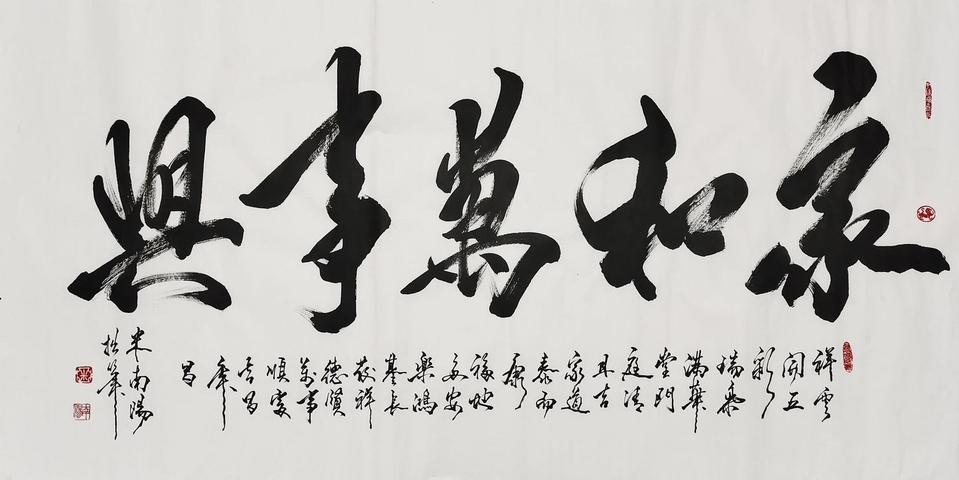 家和萬事興
祥雲
開五
彩
瑞氣
滿華
堂門
庭清
且吉
家道
泰而
康
福地
多安
樂鴻
基長
發祥
德賢
萬事
順家
吉百
年
昌
米南陽
拙筆